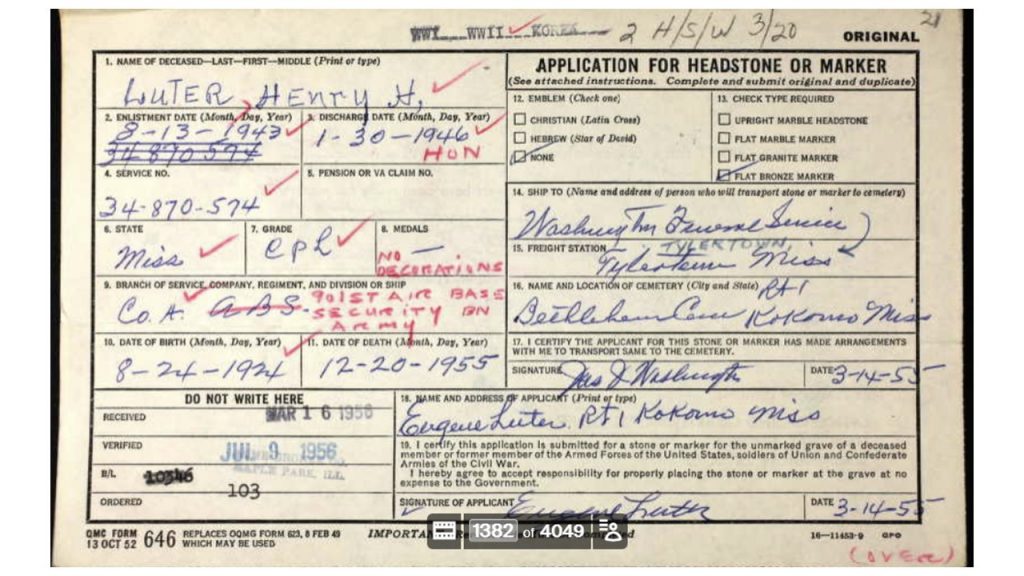 WWI WWII KOREA 2 H/S/W 3/20 21
ORIGINAL
1. NAME OF DECEASED—LAST—FIRST—MIDDLE (Print or type)
LUTER, HENRY H,
2. ENLISTMENT DATE (Month, Day, Year) 3. DISCHARGE DATE (Month, Day, Year)
8-13-1943 1-30-1946
34 870 574 HON
4. SERVICE NO. 5. PENSION OR VA CLAIM NO.
34-870-574
6. STATE 7. GRADE 8. MEDALS
Miss Cpl —
NO DECORATIONS
9. BRANCH OF SERVICE, COMPANY, REGIMENT, AND DIVISION OR SHIP
Co. A. ABS. 901ST AIR BASE
SECURITY BN
ARMY
10. DATE OF BIRTH (Month, Day, Year) 11. DATE OF DEATH (Month, Day, Year)
8-24-1924 12-20-1955
APPLICATION FOR HEADSTONE OR MARKER
(See attached instructions. Complete and submit original and duplicate)
12. EMBLEM (Check one) 13. CHECK TYPE REQUIRED
CHRISTIAN (Latin Cross) UPRIGHT MARBLE HEADSTONE
HEBREW (Star of David) FLAT MARBLE MARKER
NONE FLAT GRANITE MARKER
FLAT BRONZE MARKER
14. SHIP TO (Name and address of person who will transport stone or marker to cemetery)
Washington Funeral Service
15. FREIGHT STATION TYLERTOWN,
Tylertown Miss
16. NAME AND LOCATION OF CEMETERY (City and State) Rt 1
Bethlehem Cem Kokomo Miss
17. I CERTIFY THE APPLICANT FOR THIS STONE OR MARKER HAS MADE ARRANGEMENTS
WITH ME TO TRANSPORT SAME TO THE CEMETERY.
SIGNATURE Jas J Washington DATE 3-14-55
DO NOT WRITE HERE
RECEIVED MAR 16 1956
VERIFIED JUL 9 1956
MAPLE PARK, ILL.
B/L 10546
103
ORDERED
18. NAME AND ADDRESS OF APPLICANT (Print or type)
Eugene Luter Rt 1 Kokomo Miss
19. I certify this application is submitted for a stone or marker for the unmarked grave of a deceased
member or former member of the Armed Forces of the United States, soldiers of Union and Confederate
Armies of the Civil War.
I hereby agree to accept responsibility for properly placing the stone or marker at the grave at no
expense to the Government.
SIGNATURE OF APPLICANT Eugene Luter DATE 3-14-55
QMC FORM 13 OCT 52 646 REPLACES OQMG FORM 623, 8 FEB 49 WHICH MAY BE USED
16—11453-9 GPO
1382 of 4049
(OVER)